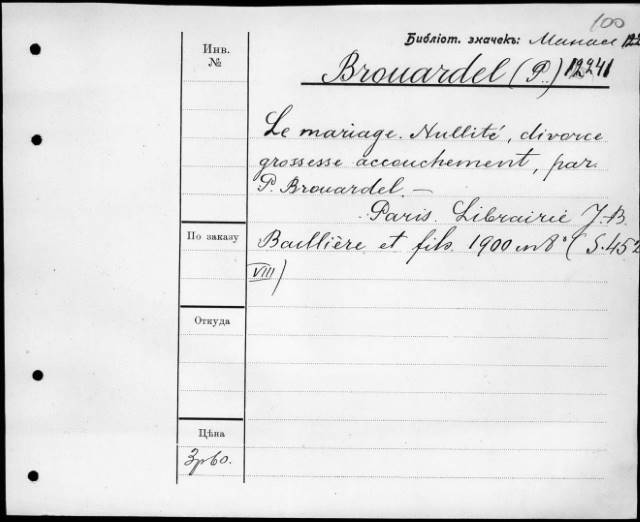 100
Библіот. значекъ:
Инв.
№
Brouardel (P.) 12241
Le mariage. Nullité, divorce
grossesse accouchement, par
P. Brouardel. —
Paris. Librairie J.-B.
По заказу
Baillière et fils. 1900 in 8° (S. 452
VIII)
Откуда
Цѣна
3р60.